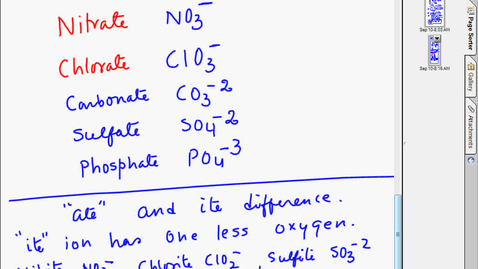 Nitrate NO₃⁻
Chlorate ClO₃⁻
Carbonate CO₃⁻²
Sulfate SO₄⁻²
Phosphate PO₄⁻³
"ate" and ite difference.
"ite" ion has one less oxygen.
Chlorite ClO₂⁻, Sulfite SO₃⁻²
Sep 10-8:03 AM
Page Sorter
Gallery
Attachments